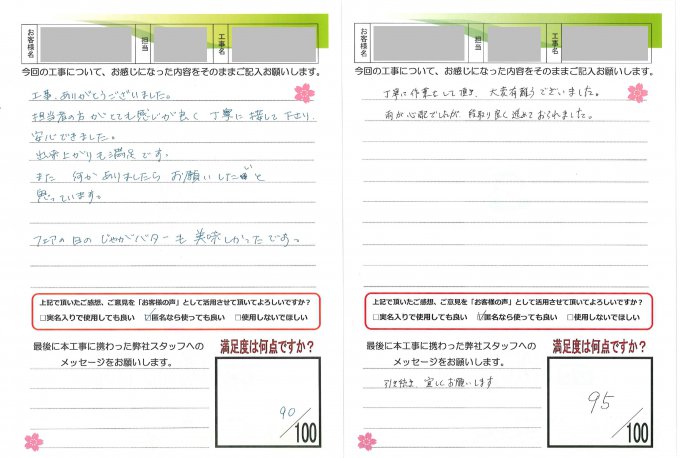 お客様名
担当
工事名
今回の工事について、お感じになった内容をそのままご記入お願いします。
工事、ありがとうございました。
担当者の方がとても感じが良く 丁寧に接して下さり、
安心できました。
出来上がりも満足です。
また 何かありましたら お願いしたいと
思っています。
フェアの日の じゃがバターも 美味しかったです。
上記で頂いたご感想、ご意見を「お客様の声」として活用させて頂いてよろしいですか？
□実名入りで使用しても良い ☑匿名なら使っても良い □使用しないでほしい
最後に本工事に携わった弊社スタッフへの
メッセージをお願いします。
満足度は何点ですか？
90/100
お客様名
担当
工事名
今回の工事について、お感じになった内容をそのままご記入お願いします。
丁寧に作業をして頂き、大変有難うございました。
雨が心配でしたが、段取り良く進めておられました。
上記で頂いたご感想、ご意見を「お客様の声」として活用させて頂いてよろしいですか？
□実名入りで使用しても良い ☑匿名なら使っても良い □使用しないでほしい
最後に本工事に携わった弊社スタッフへの
メッセージをお願いします。
引き続き、宜しくお願いします
満足度は何点ですか？
95/100